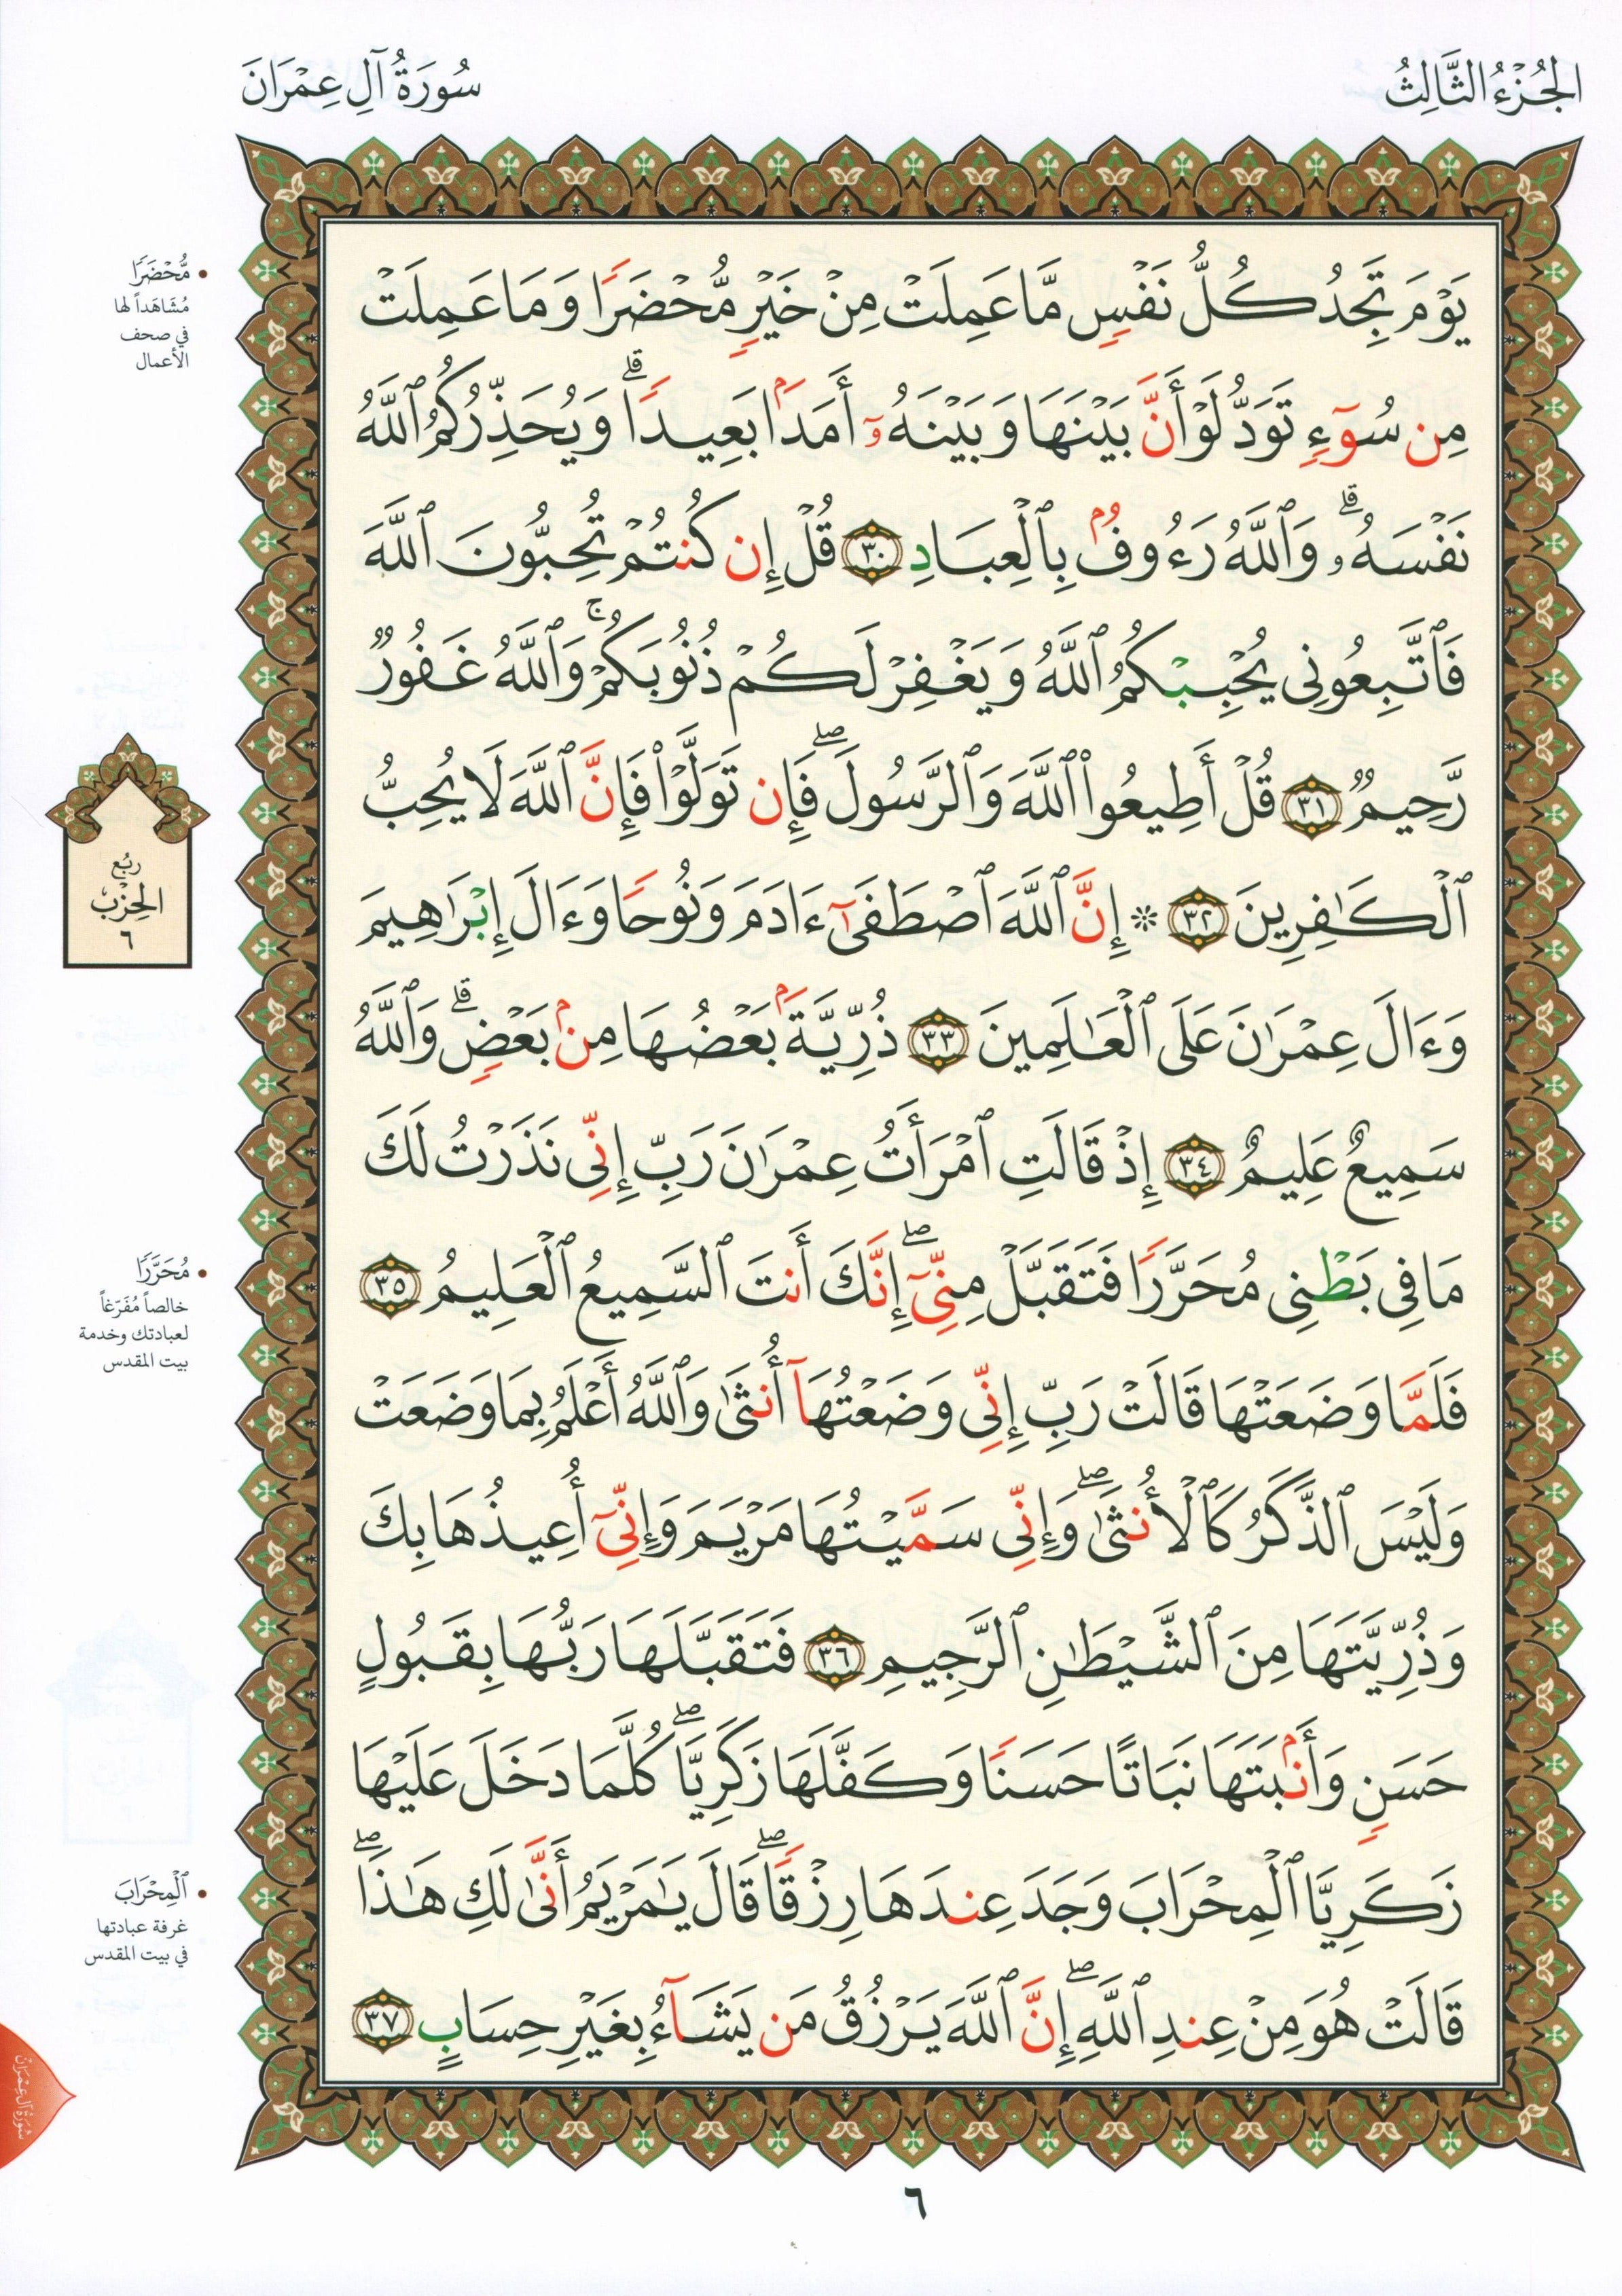 الجُزْءُ الثَّالِثُ
سُورَةُ آلِ عِمْرَانَ
يَوْمَ تَجِدُ كُلُّ نَفْسٍ مَّا عَمِلَتْ مِنْ خَيْرٍ مُّحْضَرًا وَمَا عَمِلَتْ
مِن سُوٓءٍ تَوَدُّ لَوْ أَنَّ بَيْنَهَا وَبَيْنَهُۥٓ أَمَدًۢا بَعِيدًا ۗ وَيُحَذِّرُكُمُ ٱللَّهُ
نَفْسَهُۥ ۗ وَٱللَّهُ رَءُوفٌۢ بِٱلْعِبَادِ ٣٠ قُلْ إِن كُنتُمْ تُحِبُّونَ ٱللَّهَ
فَٱتَّبِعُونِى يُحْبِبْكُمُ ٱللَّهُ وَيَغْفِرْ لَكُمْ ذُنُوبَكُمْ ۚ وَٱللَّهُ غَفُورٌ
رَّحِيمٌ ٣١ قُلْ أَطِيعُوا۟ ٱللَّهَ وَٱلرَّسُولَ ۖ فَإِن تَوَلَّوْا۟ فَإِنَّ ٱللَّهَ لَا يُحِبُّ
ٱلْكَٰفِرِينَ ٣٢ ۞ إِنَّ ٱللَّهَ ٱصْطَفَىٰٓ ءَادَمَ وَنُوحًا وَءَالَ إِبْرَٰهِيمَ
وَءَالَ عِمْرَٰنَ عَلَى ٱلْعَٰلَمِينَ ٣٣ ذُرِّيَّةًۢ بَعْضُهَا مِنۢ بَعْضٍ ۗ وَٱللَّهُ
سَمِيعٌ عَلِيمٌ ٣٤ إِذْ قَالَتِ ٱمْرَأَتُ عِمْرَٰنَ رَبِّ إِنِّى نَذَرْتُ لَكَ
مَا فِى بَطْنِى مُحَرَّرًا فَتَقَبَّلْ مِنِّىٓ ۖ إِنَّكَ أَنتَ ٱلسَّمِيعُ ٱلْعَلِيمُ ٣٥
فَلَمَّا وَضَعَتْهَا قَالَتْ رَبِّ إِنِّى وَضَعْتُهَآ أُنثَىٰ وَٱللَّهُ أَعْلَمُ بِمَا وَضَعَتْ
وَلَيْسَ ٱلذَّكَرُ كَٱلْأُنثَىٰ ۖ وَإِنِّى سَمَّيْتُهَا مَرْيَمَ وَإِنِّىٓ أُعِيذُهَا بِكَ
وَذُرِّيَّتَهَا مِنَ ٱلشَّيْطَٰنِ ٱلرَّجِيمِ ٣٦ فَتَقَبَّلَهَا رَبُّهَا بِقَبُولٍ
حَسَنٍ وَأَنۢبَتَهَا نَبَاتًا حَسَنًا وَكَفَّلَهَا زَكَرِيَّا ۖ كُلَّمَا دَخَلَ عَلَيْهَا
زَكَرِيَّا ٱلْمِحْرَابَ وَجَدَ عِندَهَا رِزْقًا ۖ قَالَ يَٰمَرْيَمُ أَنَّىٰ لَكِ هَٰذَا ۖ
قَالَتْ هُوَ مِنْ عِندِ ٱللَّهِ ۖ إِنَّ ٱللَّهَ يَرْزُقُ مَن يَشَآءُ بِغَيْرِ حِسَابٍ ٣٧
• مُّحْضَرًا
مُشَاهَداً لها
في صحف
الأعمال
رُبْع
الحِزْب
٦
• مُحَرَّرًا
خالصاً مُفَرّغاً
لعبادتك وخدمة
بيت المقدس
• ٱلْمِحْرَابَ
غرفة عبادتها
في بيت المقدس
سُورَةُ آلِ عِمْرَانَ
٦